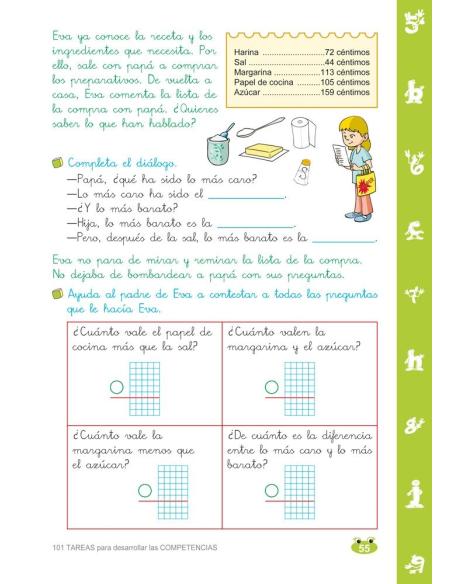 Eva ya conoce la receta y los
ingredientes que necesita. Por
ello, sale con papá a comprar
los preparativos. De vuelta a
casa, Eva comenta la lista de
la compra con papá. ¿Quieres
saber lo que han hablado?
Harina .....................72 céntimos
Sal ..........................44 céntimos
Margarina ..............113 céntimos
Papel de cocina .........105 céntimos
Azúcar ....................159 céntimos
Completa el diálogo.
—Papá, ¿qué ha sido lo más caro?
—Lo más caro ha sido el ____________.
—¿Y lo más barato?
—Hija, lo más barato es la ____________.
—Pero, después de la sal, lo más barato es la ____________.
Eva no para de mirar y remirar la lista de la compra.
No dejaba de bombardear a papá con sus preguntas.
Ayuda al padre de Eva a contestar a todas las preguntas
que le hacía Eva.
¿Cuánto vale el papel de
cocina más que la sal?
¿Cuánto valen la
margarina y el azúcar?
¿Cuánto vale la
margarina menos que
el azúcar?
¿De cuánto es la diferencia
entre lo más caro y lo más
barato?
101 TAREAS para desarrollar las COMPETENCIAS
55